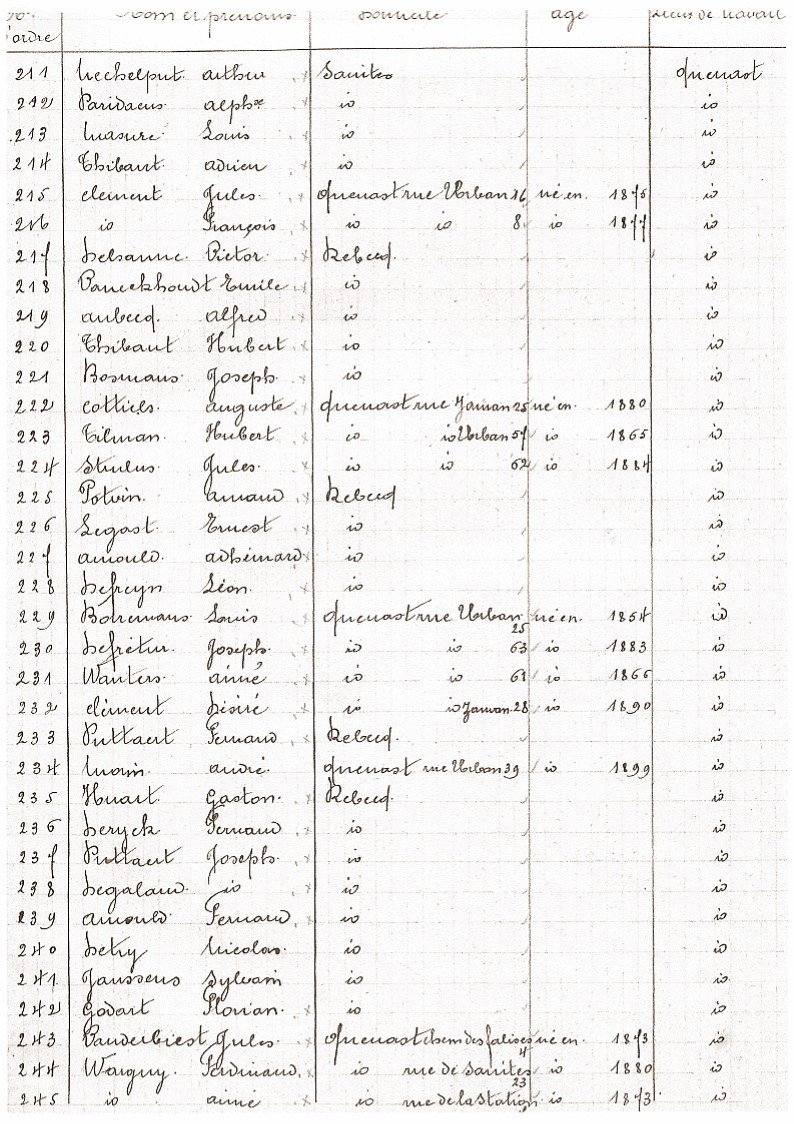 N° d'ordre Nom et prénoms Domicile age Lieux de travail
211 Mechelput arthur Saintes Quenast
212 Paridaens alphse io io
213 Masure Louis io io
214 Thibaut adrien io io
215 clément Jules Quenast rue Urban 16 né en 1875 io
216 io François io io 8 io 1877 io
217 Delsanne Victor Rebecq io
218 Vaneckhoudt Emile io io
219 aubecq alfred io io
220 Thibaut Hubert io io
221 Bosmans Joseph io io
222 cottiels auguste Quenast rue Zaman 25 né en 1880 io
223 Tilman Hubert io io Urban 57 io 1865 io
224 Strulus Jules io io 62 io 1884 io
225 Potvin arnaud Rebecq io
226 Legast Ernest io io
227 arnould adhémard io io
228 Defreyn Léon io io
229 Borremans Louis Quenast rue Urban 25 né en 1854 io
230 Defrétur Joseph io io 63 io 1883 io
231 Wauters aimé io io 61 io 1866 io
232 clément Désiré io io Zaman 28 io 1890 io
233 Puttaert Fernand Rebecq io
234 Morin andré Quenast rue Urban 39 io 1899 io
235 Huart Gaston Rebecq io
236 Deryck Fernand io io
237 Puttaert Joseph io io
238 Degaland io io io
239 arnould Fernand io io
240 Detry Nicolas io io
241 Janssens Sylvain io io
242 Godart Florian io io
243 Vanderbiest Jules Quenast chem des falises 4 né en 1873 io
244 Warguy Ferdinand io rue de Saintes 23 io 1880 io
245 io aimé io rue de la Station io 1873 io